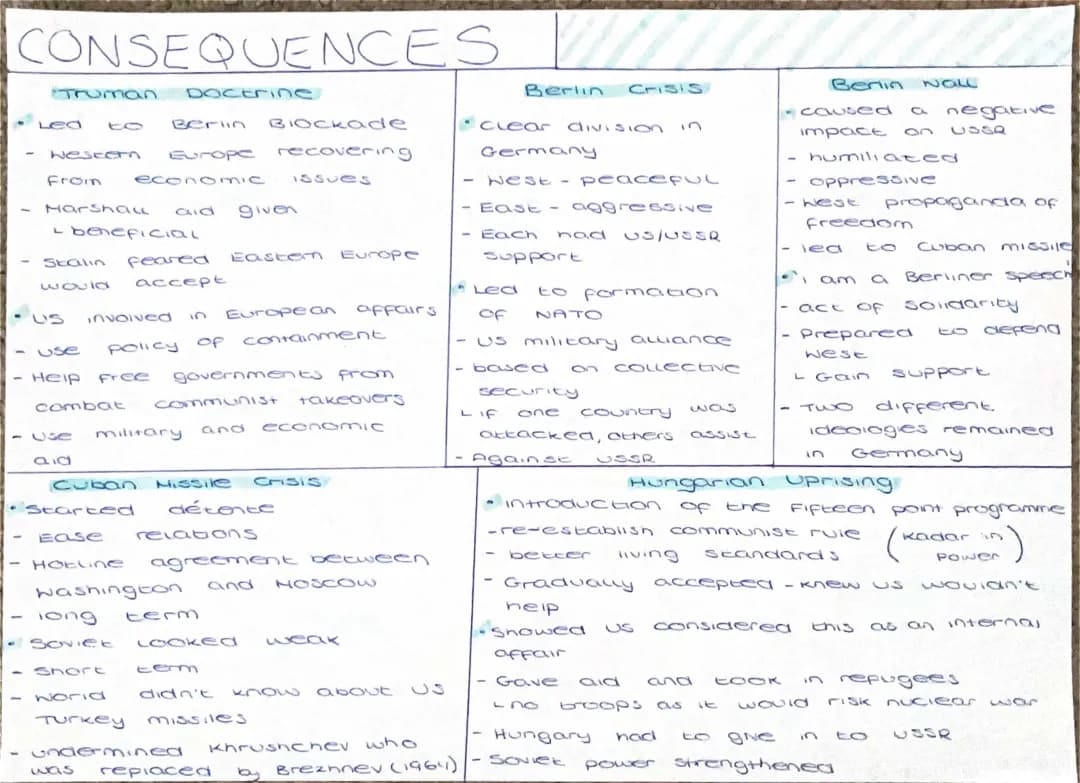 CONSEQUENCES
Truman Doctrine
• Led to Berlin Blockade
- Western Europe recovering
from economic issues
- Marshall aid given
└ beneficial
- Stalin feared Eastern Europe
would accept
• US involved in European affairs
- use policy of containment
- Help free governments from
combat communist takeovers
- Use military and economic
aid
Berlin Crisis
• Clear division in
Germany
- West - peaceful
- East - aggressive
- Each had US/USSR
support
• Led to formation
of NATO
- US military alliance
- based on collective
security
└ if one country was
attacked, others assist
- Against USSR
Berlin Wall
• caused a negative
impact on USSR
- humiliated
- oppressive
- West propaganda of
freedom
- led to Cuban missile
• i am a Berliner speech
- act of solidarity
- Prepared to defend
West
└ Gain support
- Two different
ideologies remained
in Germany
Cuban Missile Crisis
• Started détente
- Ease relations
- Hotline agreement between
Washington and Moscow
- long term
• Soviet looked weak
- short term
- World didn't know about US
Turkey missiles
- undermined Khrushchev who
was replaced by Brezhnev (1964)
Hungarian Uprising
• introduction of the fifteen point programme
- re-establish communist rule (Kadar in
- better living standards power)
- Gradually accepted - knew US wouldn't
help
• Showed US considered this as an internal
affair
- Gave aid and took in refugees
└ no troops as it would risk nuclear war
- Hungary had to give in to USSR
- Soviet power strengthened